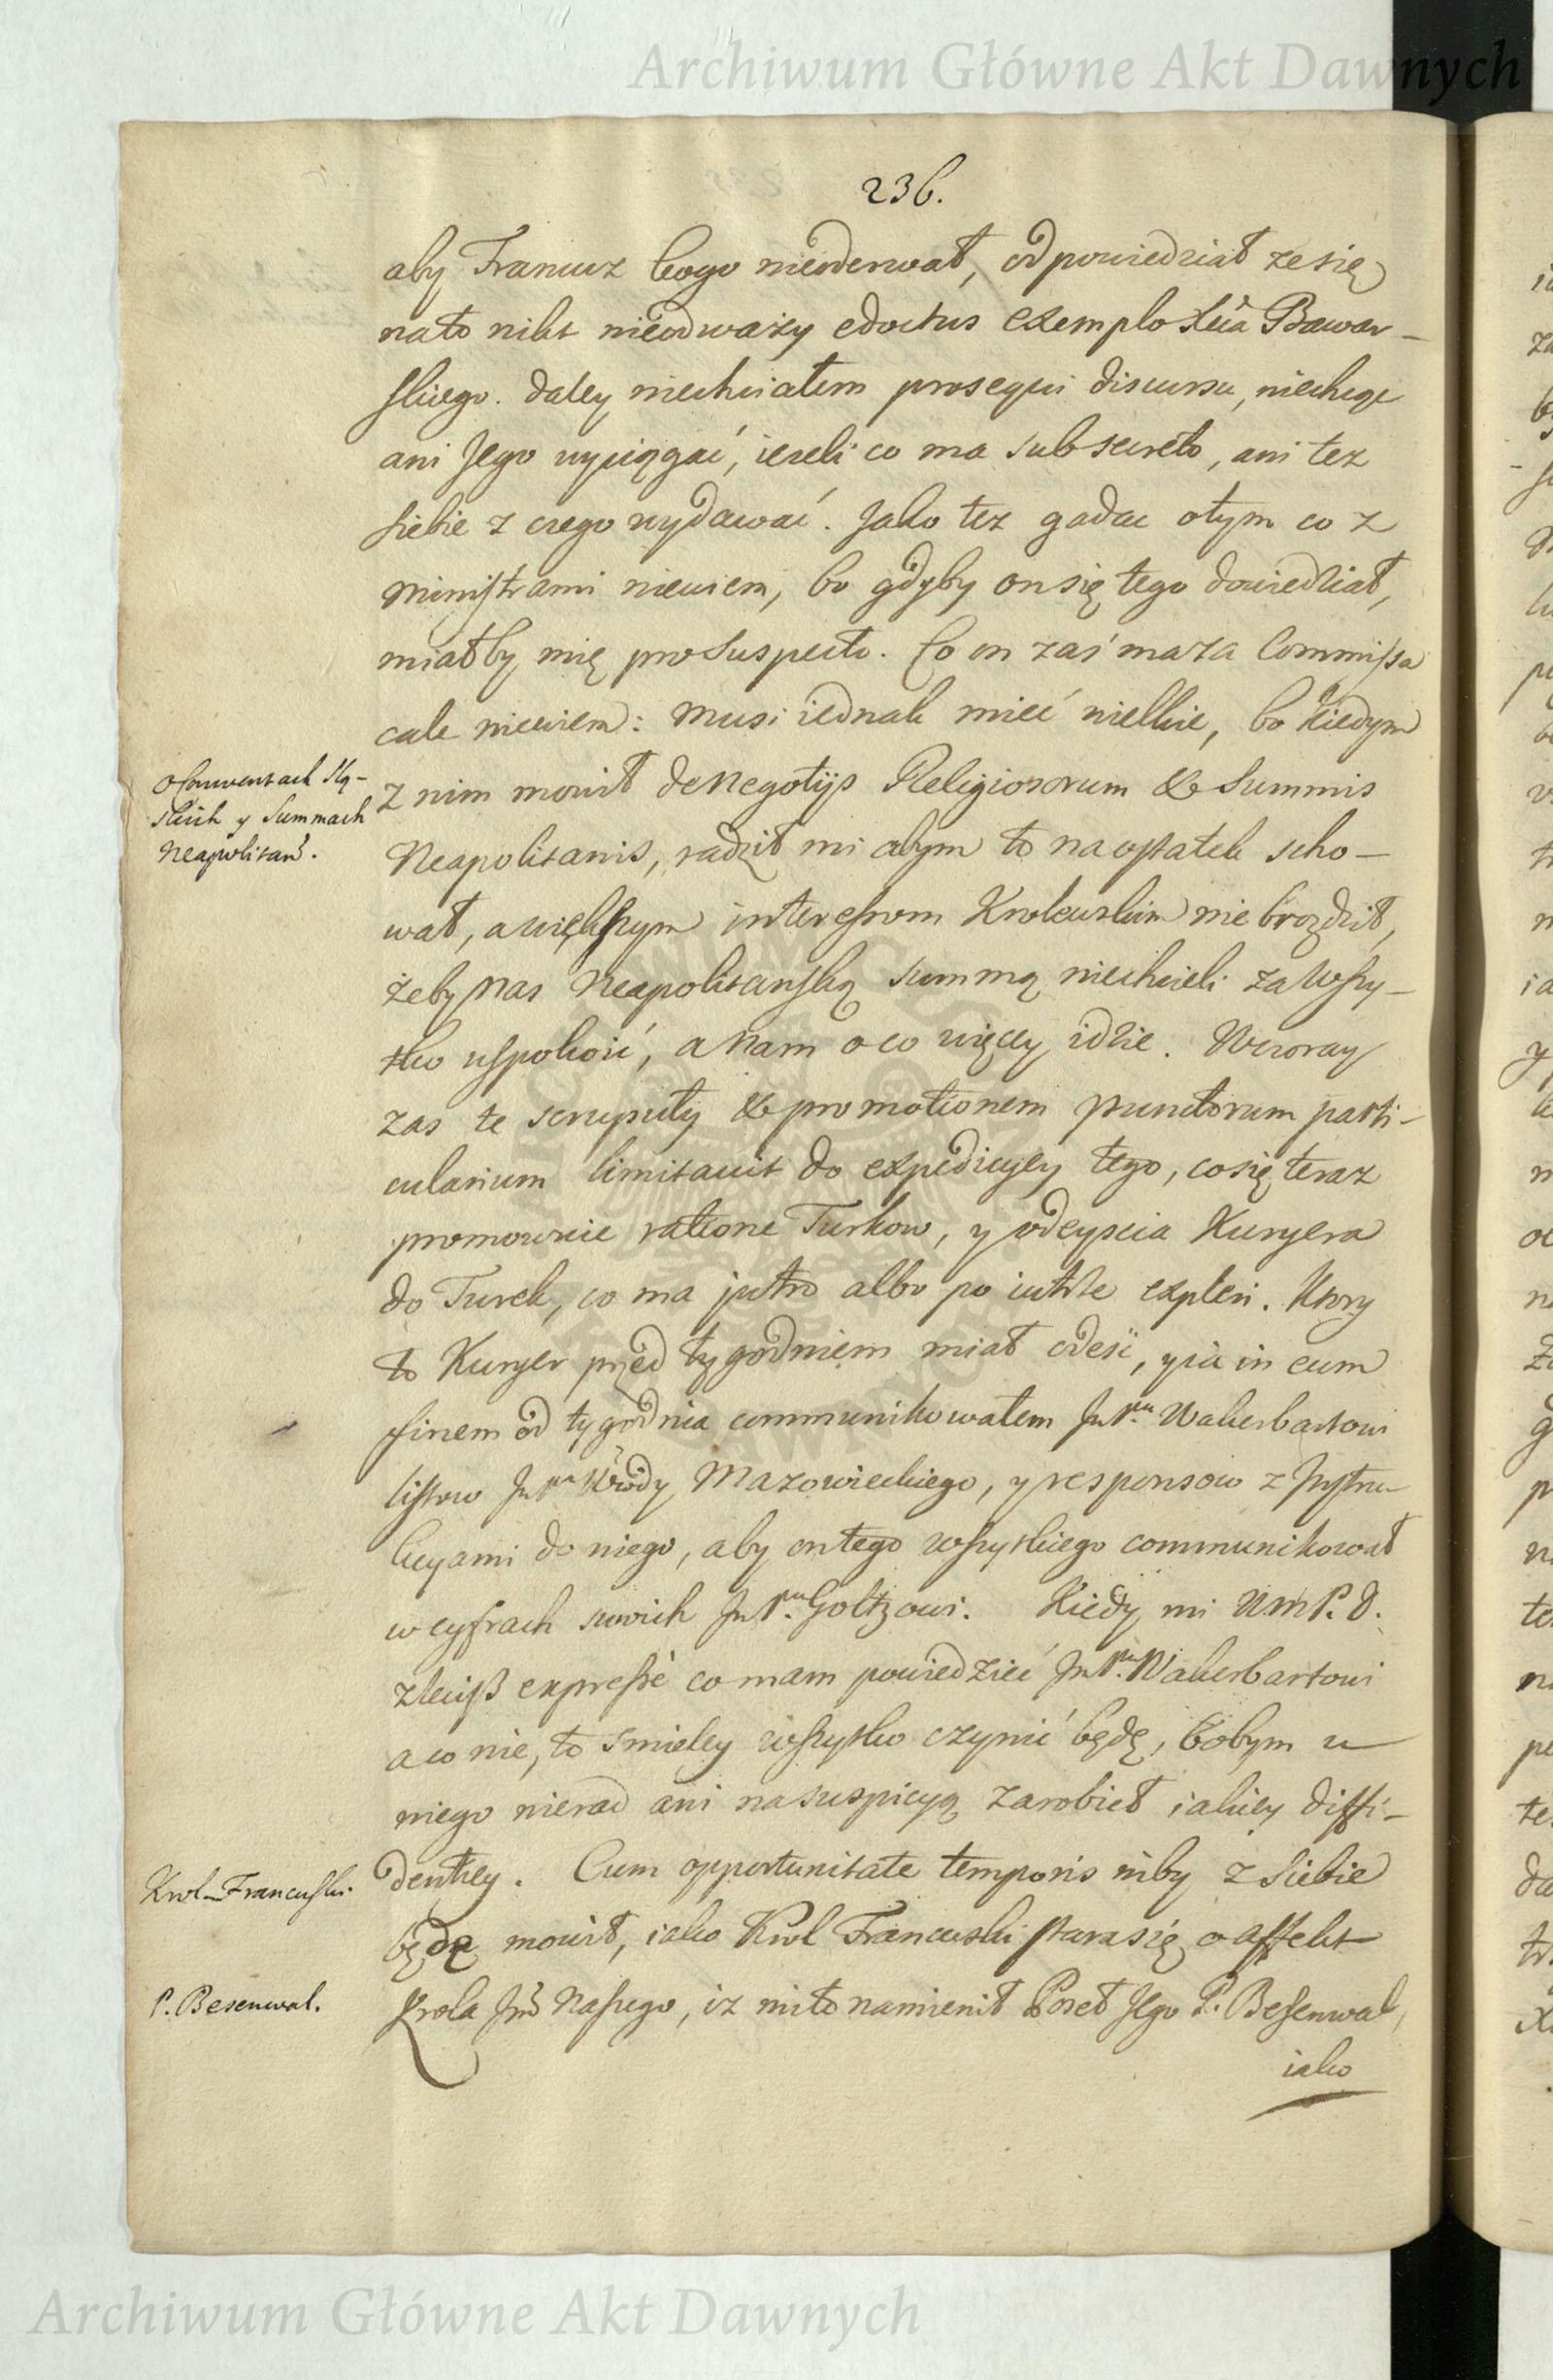 Archiwum Główne Akt Dawnych
236.
aby Francuz kogo nieoderwał, odpowiedział ze się
nato nikt nieodwazy edoctus exemplo Xcia Bawar-
skiego. Daley niechciałem prosequi discursu, niechcąc
ani Jego wyciągać, iezeli co ma sub secreto, ani tez
siebie z czego wydawać. Jako tez gadac otym co z
Ministrami niewiem, bo gdyby on się tego dowiedział,
miałby mię pro suspecto. Co on zaś ma za Commissa
cale niewiem: Musi iednak mieć wielkie, bo kiedym
z nim mowił de Negotijs Religiosorum & Summis
Neapolitanis, radził mi abym to na ostatek scho-
wał, a większym interessom Krolewskim nie brozdził,
żeby nas Neapolitanską summą niechcieli za wszy-
stko uspokoić, a nam o co więcy idzie. Wczoray
zas te scrupuły & promotionem punctorum parti-
cularium limitavit do expedicyey tego, co się teraz
promowuie ratione Turkow, y odeyscia Kuryera
do Turek, co ma jutro albo po iutrze expleri. Ktory
to Kuryer przed tygodniem miał odeść, y ia in eum
finem od tygodnia communikowałem Jm Pnu Wakerbartowi
listow Jm Pna Wwdy Mazowieckiego, y responsow z Jnstru-
kcyami do niego, aby on tego wszystkiego communikował
w cyfrach swoich Jm Pnu Goltzowi. Kiedy mi WmP. D.
zlecisz expressè co mam powiedzieć Jm Pnu Wakerbartowi
a co nie, to smieley wszystko czynić będę, bobym u
niego nierad ani na suspicyą zarobieł iakiey diffi-
dentiey. Cum opportunitate temporis niby z siebie
będę mowił, iako Krol Francuski stara się o affekt
Krola Jmci Naszego, iz mi to namienił Poseł Jego P. Besenwal,
iako
o Conventach Ślą-
skich y Summach
Neapolitań.
Krol Francuski.
P. Besenwal.
Archiwum Główne Akt Dawnych